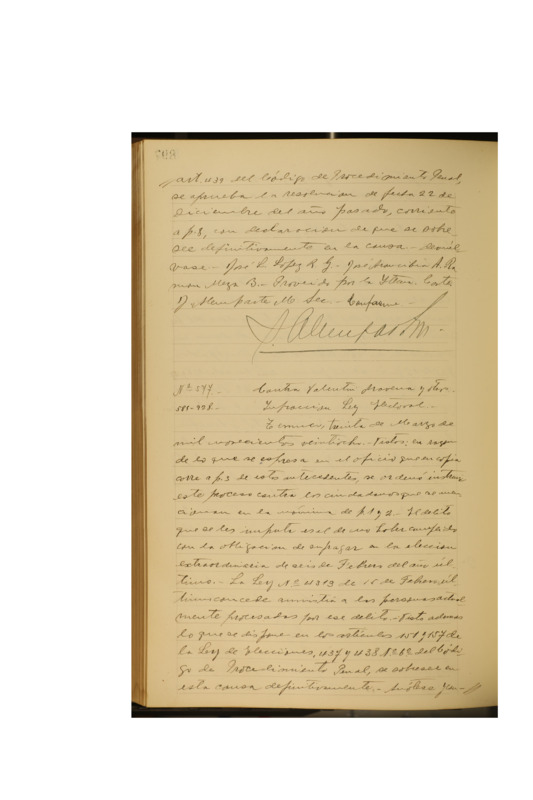 art. 439 del Código de Procedimiento Penal,
se aprueba la resolucion de fecha 22 de
Diciembre del año pasado, corriente
a f. 8, con declaracion de que se sobre
see definitivamente en la causa. - Devuel
vase. - José L. López R. G. - José A. Ra
mon Meza B. - Proveido por la Iltma. Corte
D. Alemparte M. Sec. - Conforme -
D. Alemparte M.
Nº 377. - Contra Valentin Aravena y otros.
Infraccion Ley Electoral. -
Temuco, treinta de Marzo de
mil novecientos veintiocho. - Vistos: en razon
de lo que se espresa en el oficio que en copia
corre a f. 3 de estos antecedentes, se ordenó instruir
este proceso contra los ciudadanos que se men
cionan en la nómina de f. 1 y 2. - El delito
que se les imputa es el de no haber cumplido
con la obligacion de sufragar en la eleccion
extraordinaria de seis de Febrero del año úl
timo. - La Ley Nº 4313 de 16 de Febrero úl
timo concede amnistia a las personas actual
mente procesadas por ese delito. - Visto ademas
lo que se dispone en los artículos 151 y 157 de
la Ley de Elecciones, 437 y 438 del Códi-
go de Procedimiento Penal, se sobresee en
esta causa definitivamente. -